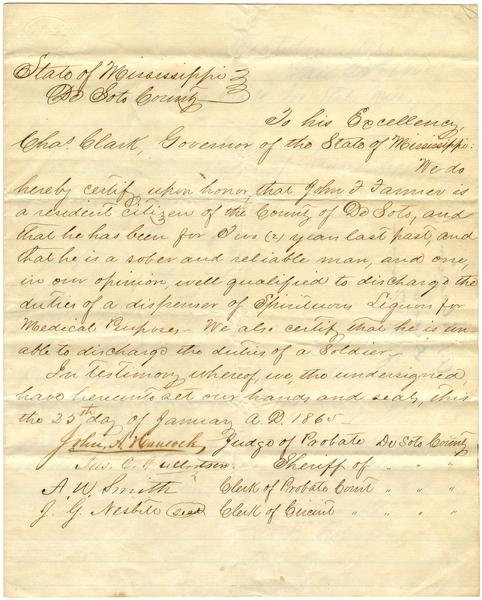 State of Mississippi
De Soto County
To his Excellency,
Chas. Clark, Governor of the State of Mississippi:
We do
hereby certify, upon honor, that John F Farmer is
a resident citizen of the County of De Soto, and
that he has been for Two (2) years last past, and
that he is a sober and reliable man, and one,
in our opinion, well qualified to discharge the
duties of a dispenser of Spirituous Liquors for
Medical Purposes - We also certify that he is un
able to discharge the duties of a Soldier,
In testimony whereof, we, the undersigned,
have hereunto set our hands, and seals, this
the 25th day of January A.D. 1865
John, A. Hancock, Judge of Probate De Soto County
Sheriff of " " "
A. W. Smith Clerk of Probate Court " " "
J. G. Nesbitt (seal) Clerk of Circuit " " " "